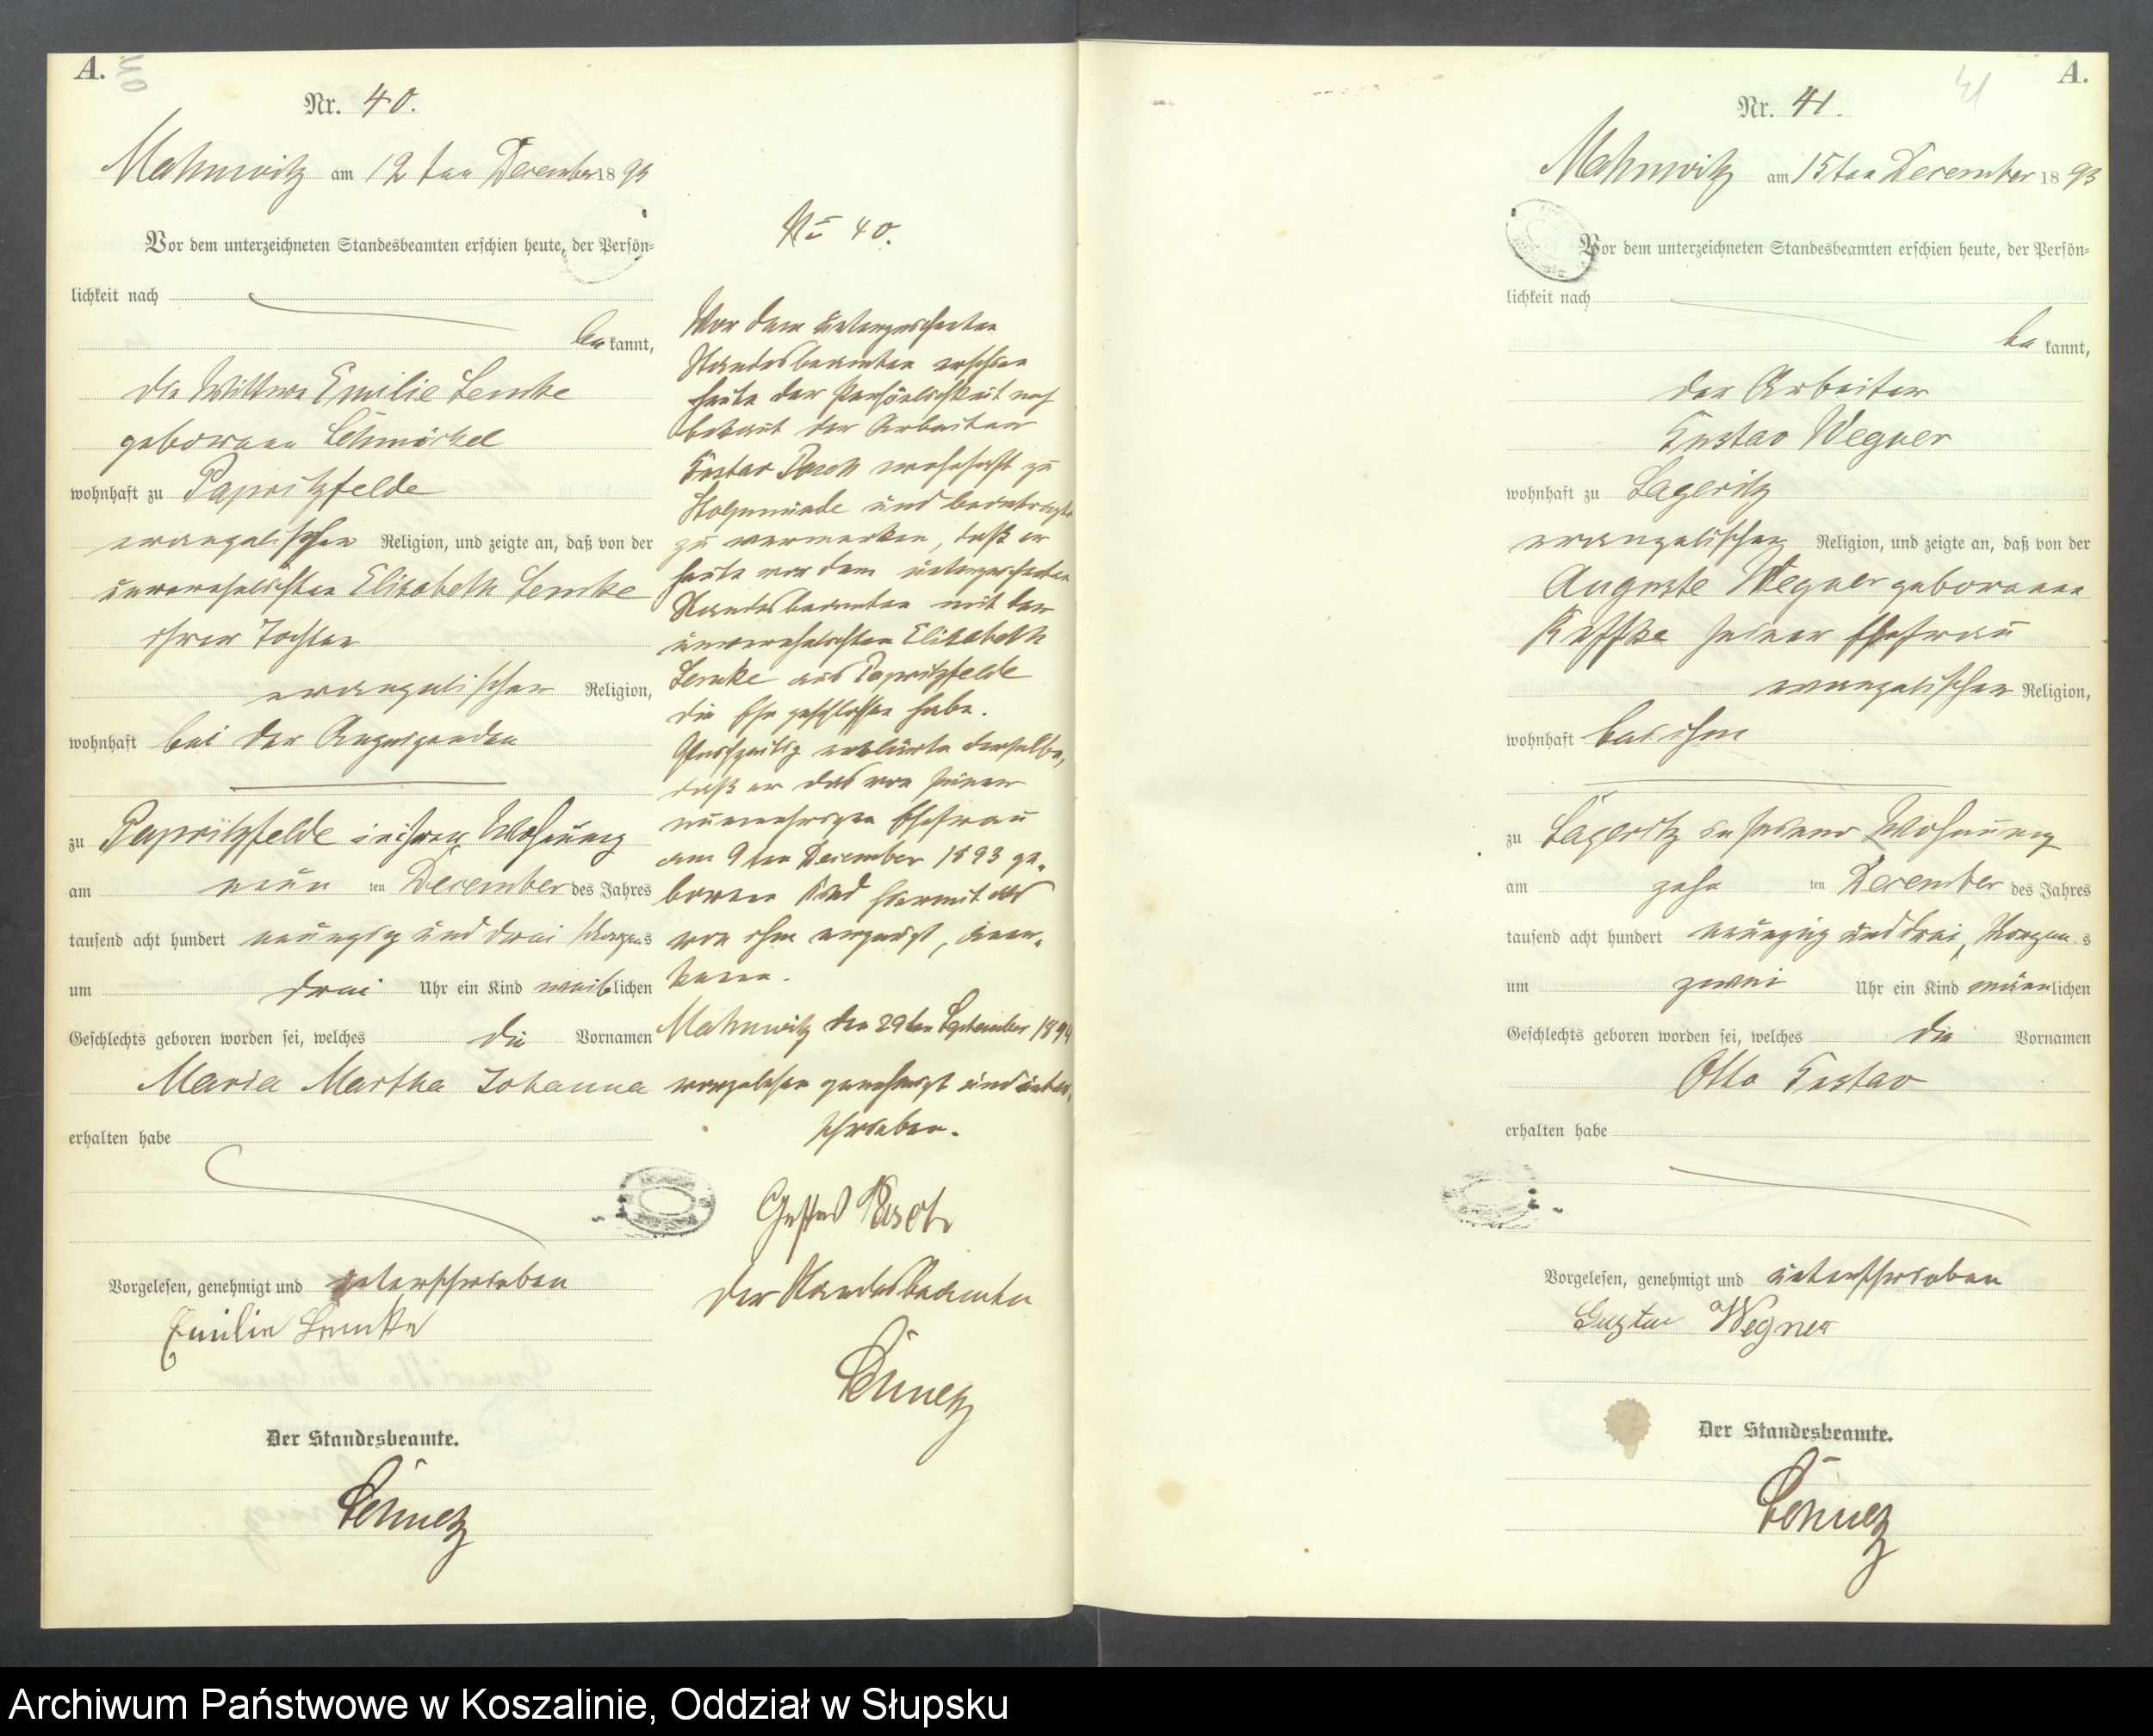 A.
40
Nr. 40.
Mahnwitz am 12ten December 1893
Vor dem unterzeichneten Standesbeamten erschien heute, der Persön-
lichkeit nach
be kannt,
die Wittwe Emilie Lemke
geborene Schmöckel
wohnhaft zu Papritzfelde
evangelischer Religion, und zeigte an, daß von der
unverehelichten Elisabeth Lemke
ihrer Tochter
evangelischer Religion,
wohnhaft bei der Anzeigenden
zu Papritzfelde in ihrer Wohnung
am neun ten December des Jahres
tausend acht hundert neunzig und drei Morgens
um drei Uhr ein Kind weiblichen
Geschlechts geboren worden sei, welches die Vornamen
Maria Martha Johanna
erhalten habe
Vorgelesen, genehmigt und unterschrieben
Emilie Lemke
Der Standesbeamte.
No 40.
Vor dem unterzeichneten
Standesbeamten erschien
heute der Persönlichkeit nach
bekannt der Arbeiter
Gustav Pasch wohnhaft zu
Stolpmünde und beantragte
zu vermerken, daß er
heute vor dem unterzeichneten
Standesbeamten mit der
unverehelichten Elisabeth
Lemke aus Papritzfelde
die Ehe geschlossen habe.
Gleichzeitig erklärte derselbe,
daß er das von seiner
nunmehrigen Ehefrau
am 9ten December 1893 ge-
borene Kind hiermit als
von ihm erzeugt, aner-
kenne.
Mahnwitz den 29ten September 1894
vorgelesen genehmigt und unter-
schrieben.
Gustav Pasch
Der Standesbeamte
A.
41
Nr. 41.
Mahnwitz am 15ten December 1893
Vor dem unterzeichneten Standesbeamten erschien heute, der Persön-
lichkeit nach
be kannt,
der Arbeiter
Gustav Wegner
wohnhaft zu Lageritz
evangelischer Religion, und zeigte an, daß von der
Auguste Wegner geborenen
seiner Ehefrau
evangelischer Religion,
wohnhaft bei ihm
zu Lageritz in seiner Wohnung
am zehn ten December des Jahres
tausend acht hundert neunzig und drei, Morgen s
um zwei Uhr ein Kind männlichen
Geschlechts geboren worden sei, welches die Vornamen
Otto Gustav
erhalten habe
Vorgelesen, genehmigt und unterschrieben
Gustav Wegner
Der Standesbeamte.
Archiwum Państwowe w Koszalinie, Oddział w Słupsku